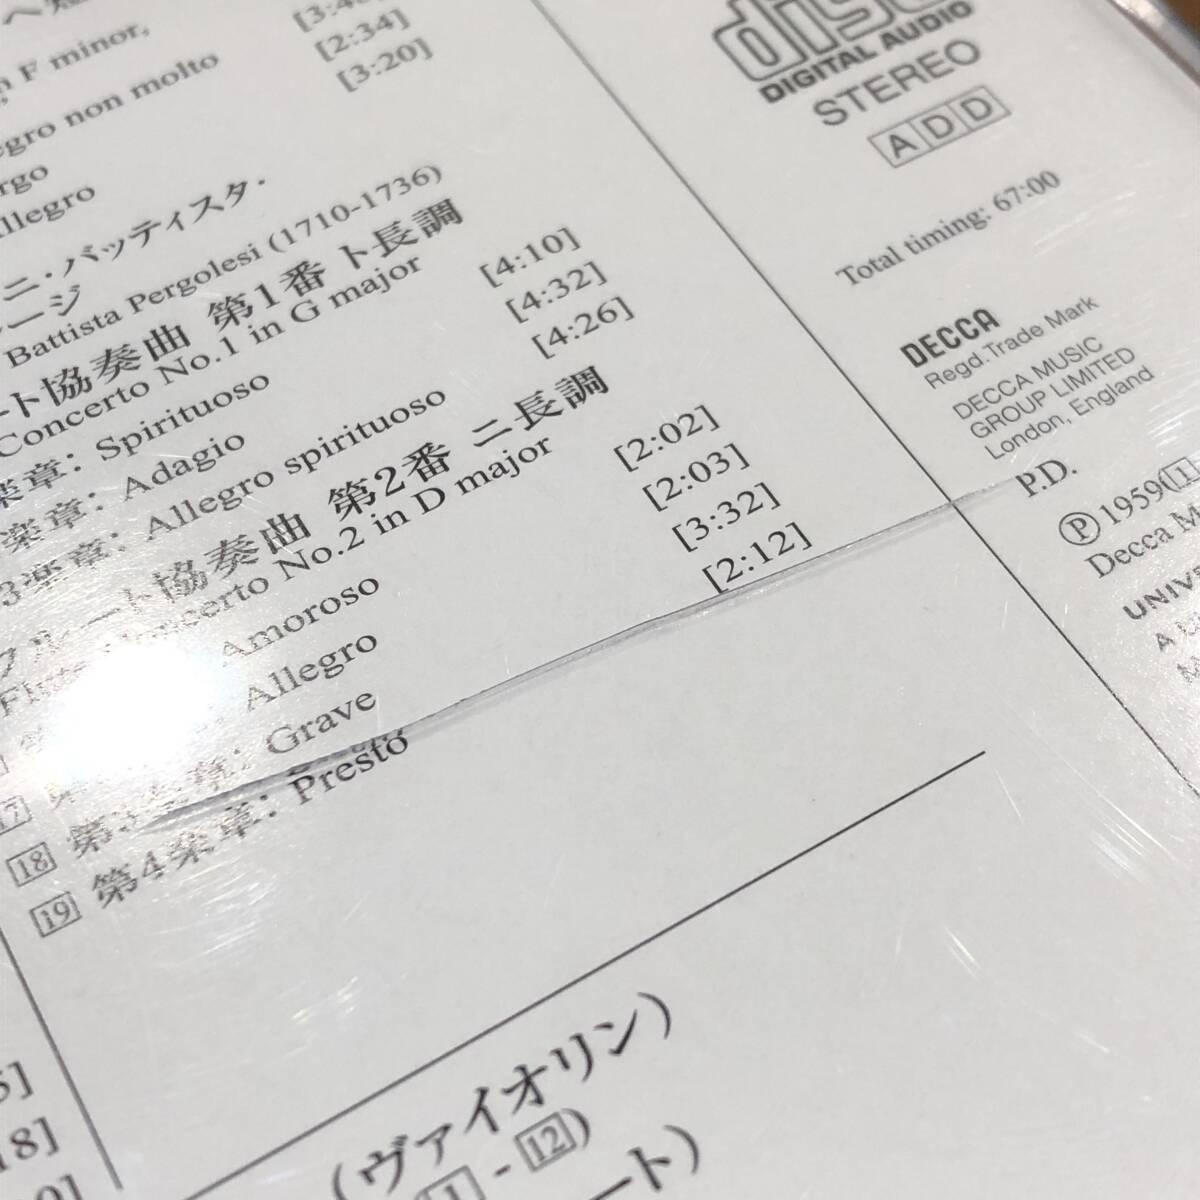 F minor,
[2:34]
[3:20]
non molto
Allegro
ニ・バッティスタ・
Battista Pergolesi (1710-1736)
協奏曲 第1番 ト長調
Concerto No.1 in G major
楽章: Spirituoso [4:10]
楽章: Adagio [4:32]
3楽章: Allegro spirituoso [4:26]
フルート協奏曲 第2番 ニ長調
Concerto No.2 in D major
Amoroso [2:02]
17 Allegro [2:03]
18 第3楽章: Grave [3:32]
19 第4楽章: Presto [2:12]
18]
(ヴァイオリン)
1 - 12)
ート)
DIGITAL AUDIO
STEREO
ADD
Total timing: 67:00
DECCA
Regd.Trade Mark
DECCA MUSIC
GROUP LIMITED
London, England
P.D.
Ⓟ 1959
Decca